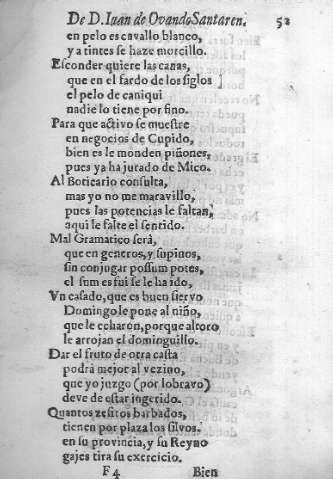 De D. Iuan de Ovando Santaren. 52
en pelo es cavallo blanco,
y a tintes se haze morcillo.
Esconder quiere las canas,
que en el fardo de los siglos
el pelo de caniqui
nadie lo tiene por fino.
Para que activo se muestre
en negocios de Cupido,
bien es le monden piñones,
pues ya ha jurado de Mico.
Al Boticario consulta,
mas yo no me maravillo,
pues las potencias le faltan,
aqui le falte el sentido.
Mal Gramatico será,
que en generos, y supinos,
sin conjugar possum potes,
el sum es fui se le ha ido,
Vn casado, que es buen siervo
Domingo le pone al niño,
que le echaron, porque al toro
le arrojan el dominguillo.
Dar el fruto de otra casta
podrá mejor al vezino,
que yo juzgo (por lo bravo)
deve de estar ingerido.
Quantos zesitos barbados,
tienen por plaza los silvos.
en su provincia, y su Reyno
gajes tira su exercicio.
F 4 Bien